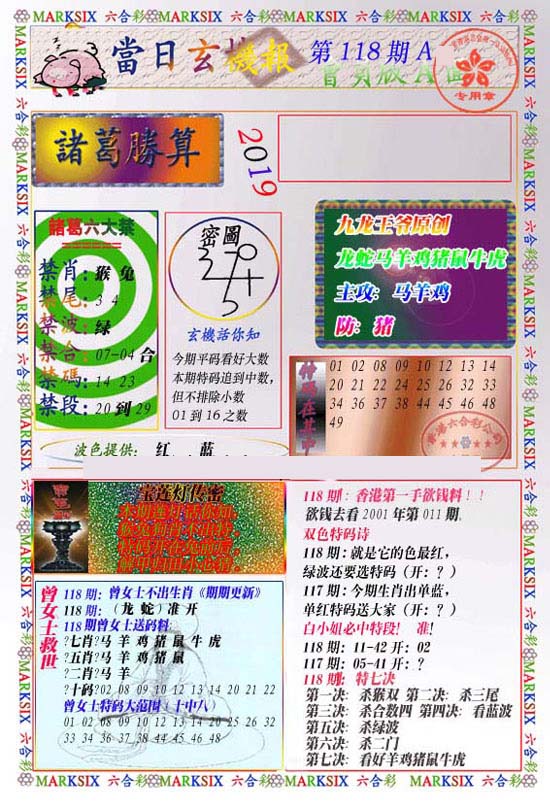 MARKSIX 六合彩 MARKSIX 六合彩 MARKSIX 六合彩 MARKSIX 六合彩
當日玄機报
第118期A
专用章
諸葛勝算
2019
九龙王爷原创
龙蛇马羊鸡猪鼠牛虎
主攻: 马羊鸡
防: 猪
諸葛六大禁
禁肖:猴 兔
禁尾:3 4
禁波:绿
禁合:07-04合
禁碼:14 23
禁段:20到29
密圖
玄機話你知
今期平码看好大数
本期特码追到中数,
但不排除小数
01到16之数
01 02 04 08 09 10 12 13 14
20 21 22 24 25 26 32 33
34 36 37 38 44 45 46 48
49
波色提供: 红. .蓝. . .
宝莲灯传密
曾女士救世
118期: 曾女士不出生肖《期期更新》
118期: (龙 蛇) 准开
118期曾女士送码料:
?七肖?马 羊 鸡 猪 鼠 牛 虎
?五肖?马 羊 鸡 猪 鼠
?二肖?马 羊
?十码?02 08 09 10 12 13 14 20 21 22
曾女士特码大范围(十中八)
01 02 08 09 10 12 13 14 20 25 26 32
33 34 36 37 38 44 45 46 48
118期: 香港第一手欲钱料!!
欲钱去看2001年第011期.
双色特码诗
118期:就是它的色最红,
绿波还要选特码(开: ?)
117期:今期生肖出单蓝,
单红特码送大家(开: ?)
白小姐必中特段! 准!
118期: 11-42 开: 02
117期: 05-41 开: ?
118期: 特七决
第一决: 杀猴双 第二决: 杀三尾
第三决: 杀合数四 第四决: 看蓝波
第五决: 杀绿波
第六决: 杀二门
第七决: 看好羊鸡猪鼠牛虎
MARKSIX 六合彩 MARKSIX 六合彩 MARKSIX 六合彩 MARKSIX 六合彩